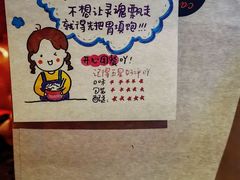 不想让灵魂飘走
就得先把胃填饱!!!
开心用餐吖!
记得五星好评吖
口味 ★★★★★
包装 ★★★★★
配送 ★★★★★